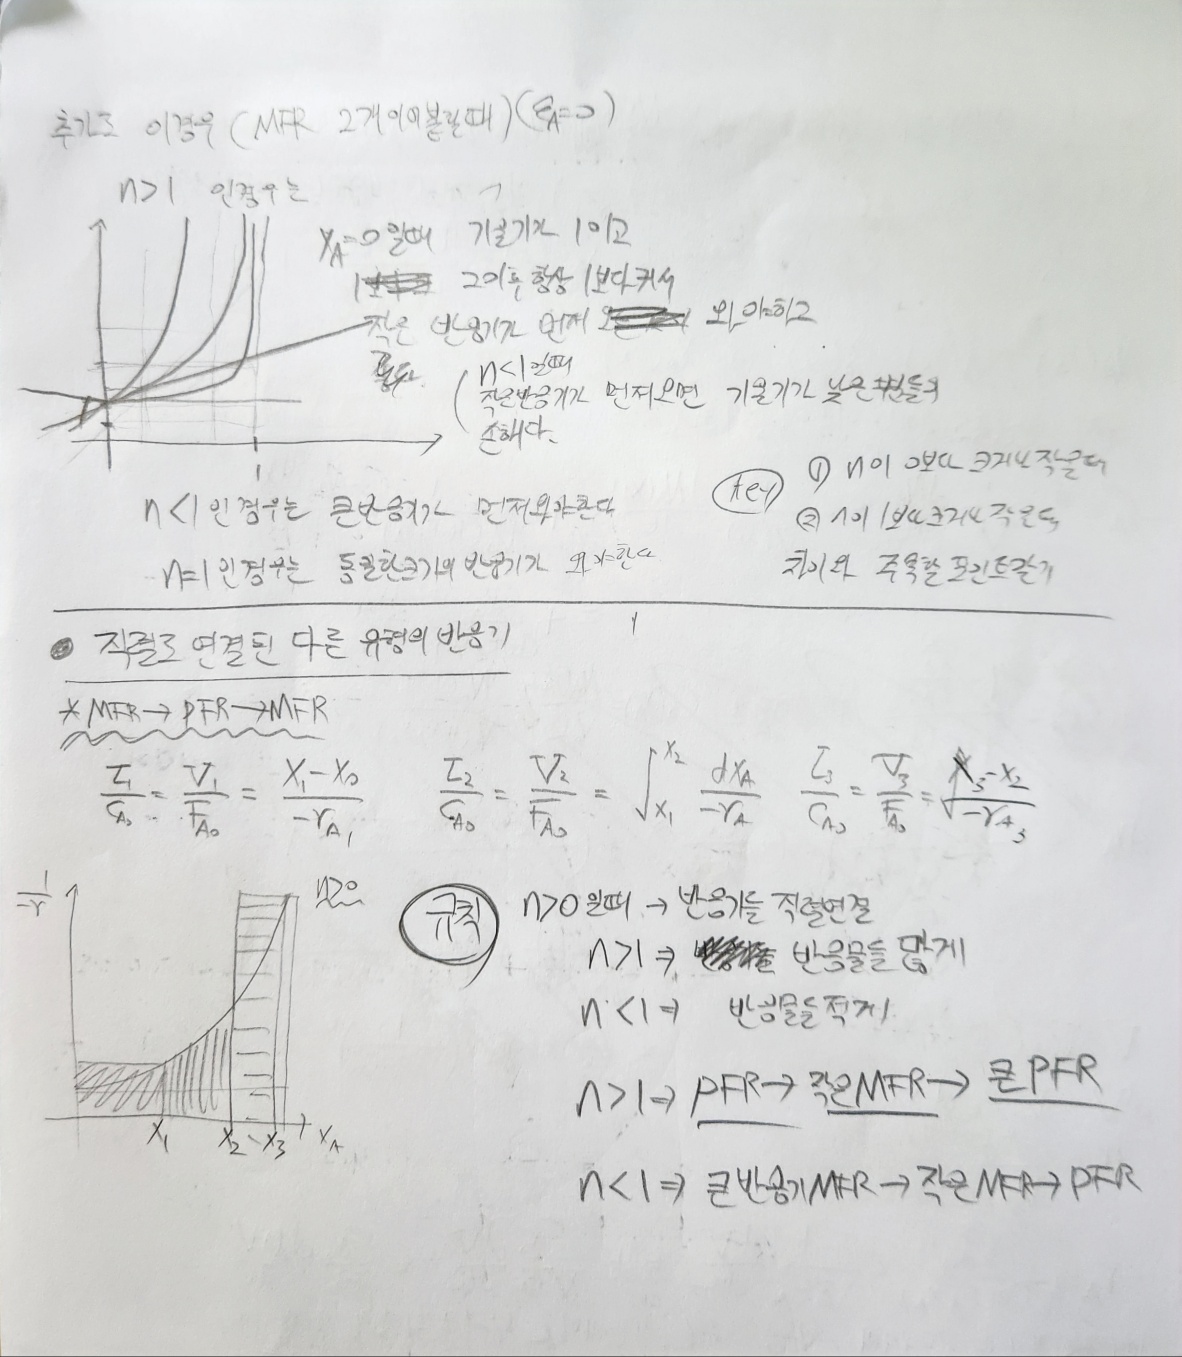 추가로 이경우 (MFR 2개이어붙일때) (εA=0)
n>1 인경우는
XA=0 일때 기울기가 1이고
그이후 항상 1보다 커서
작은 반응기가 먼저 와야하고
(n<1일때
작은반응기가 먼저오면 기울기가 낮은부분들의
손해다.
1
n<1인경우는 큰반응기가 먼저와야한다
n=1인경우는 동일한크기의 반응기가 와야한다
key ① n이 0보다 크거나 작을때
② n이 1보다 크거나 작은지
차이와 주목할 포인트같기
● 직렬로 연결된 다른 유형의 반응기
* MFR → PFR → MFR
τ1/CA0 = V1/FA0 = (X1-X0)/(-rA1) τ2/CA0 = V2/FA0 = ∫X1^X2 dXA/(-rA) τ3/CA0 = V3/FA0 = (X3-X2)/(-rA3)
1/-r n>0
X1 X2 X3 XA
규칙 n>0일때 → 반응기들 직렬연결
n>1 ⇒ 반응물들 많게
n<1 ⇒ 반응물들 적게
n>1 ⇒ PFR → 작은MFR → 큰 PFR
n<1 ⇒ 큰반응기MFR → 작은 MFR → PFR